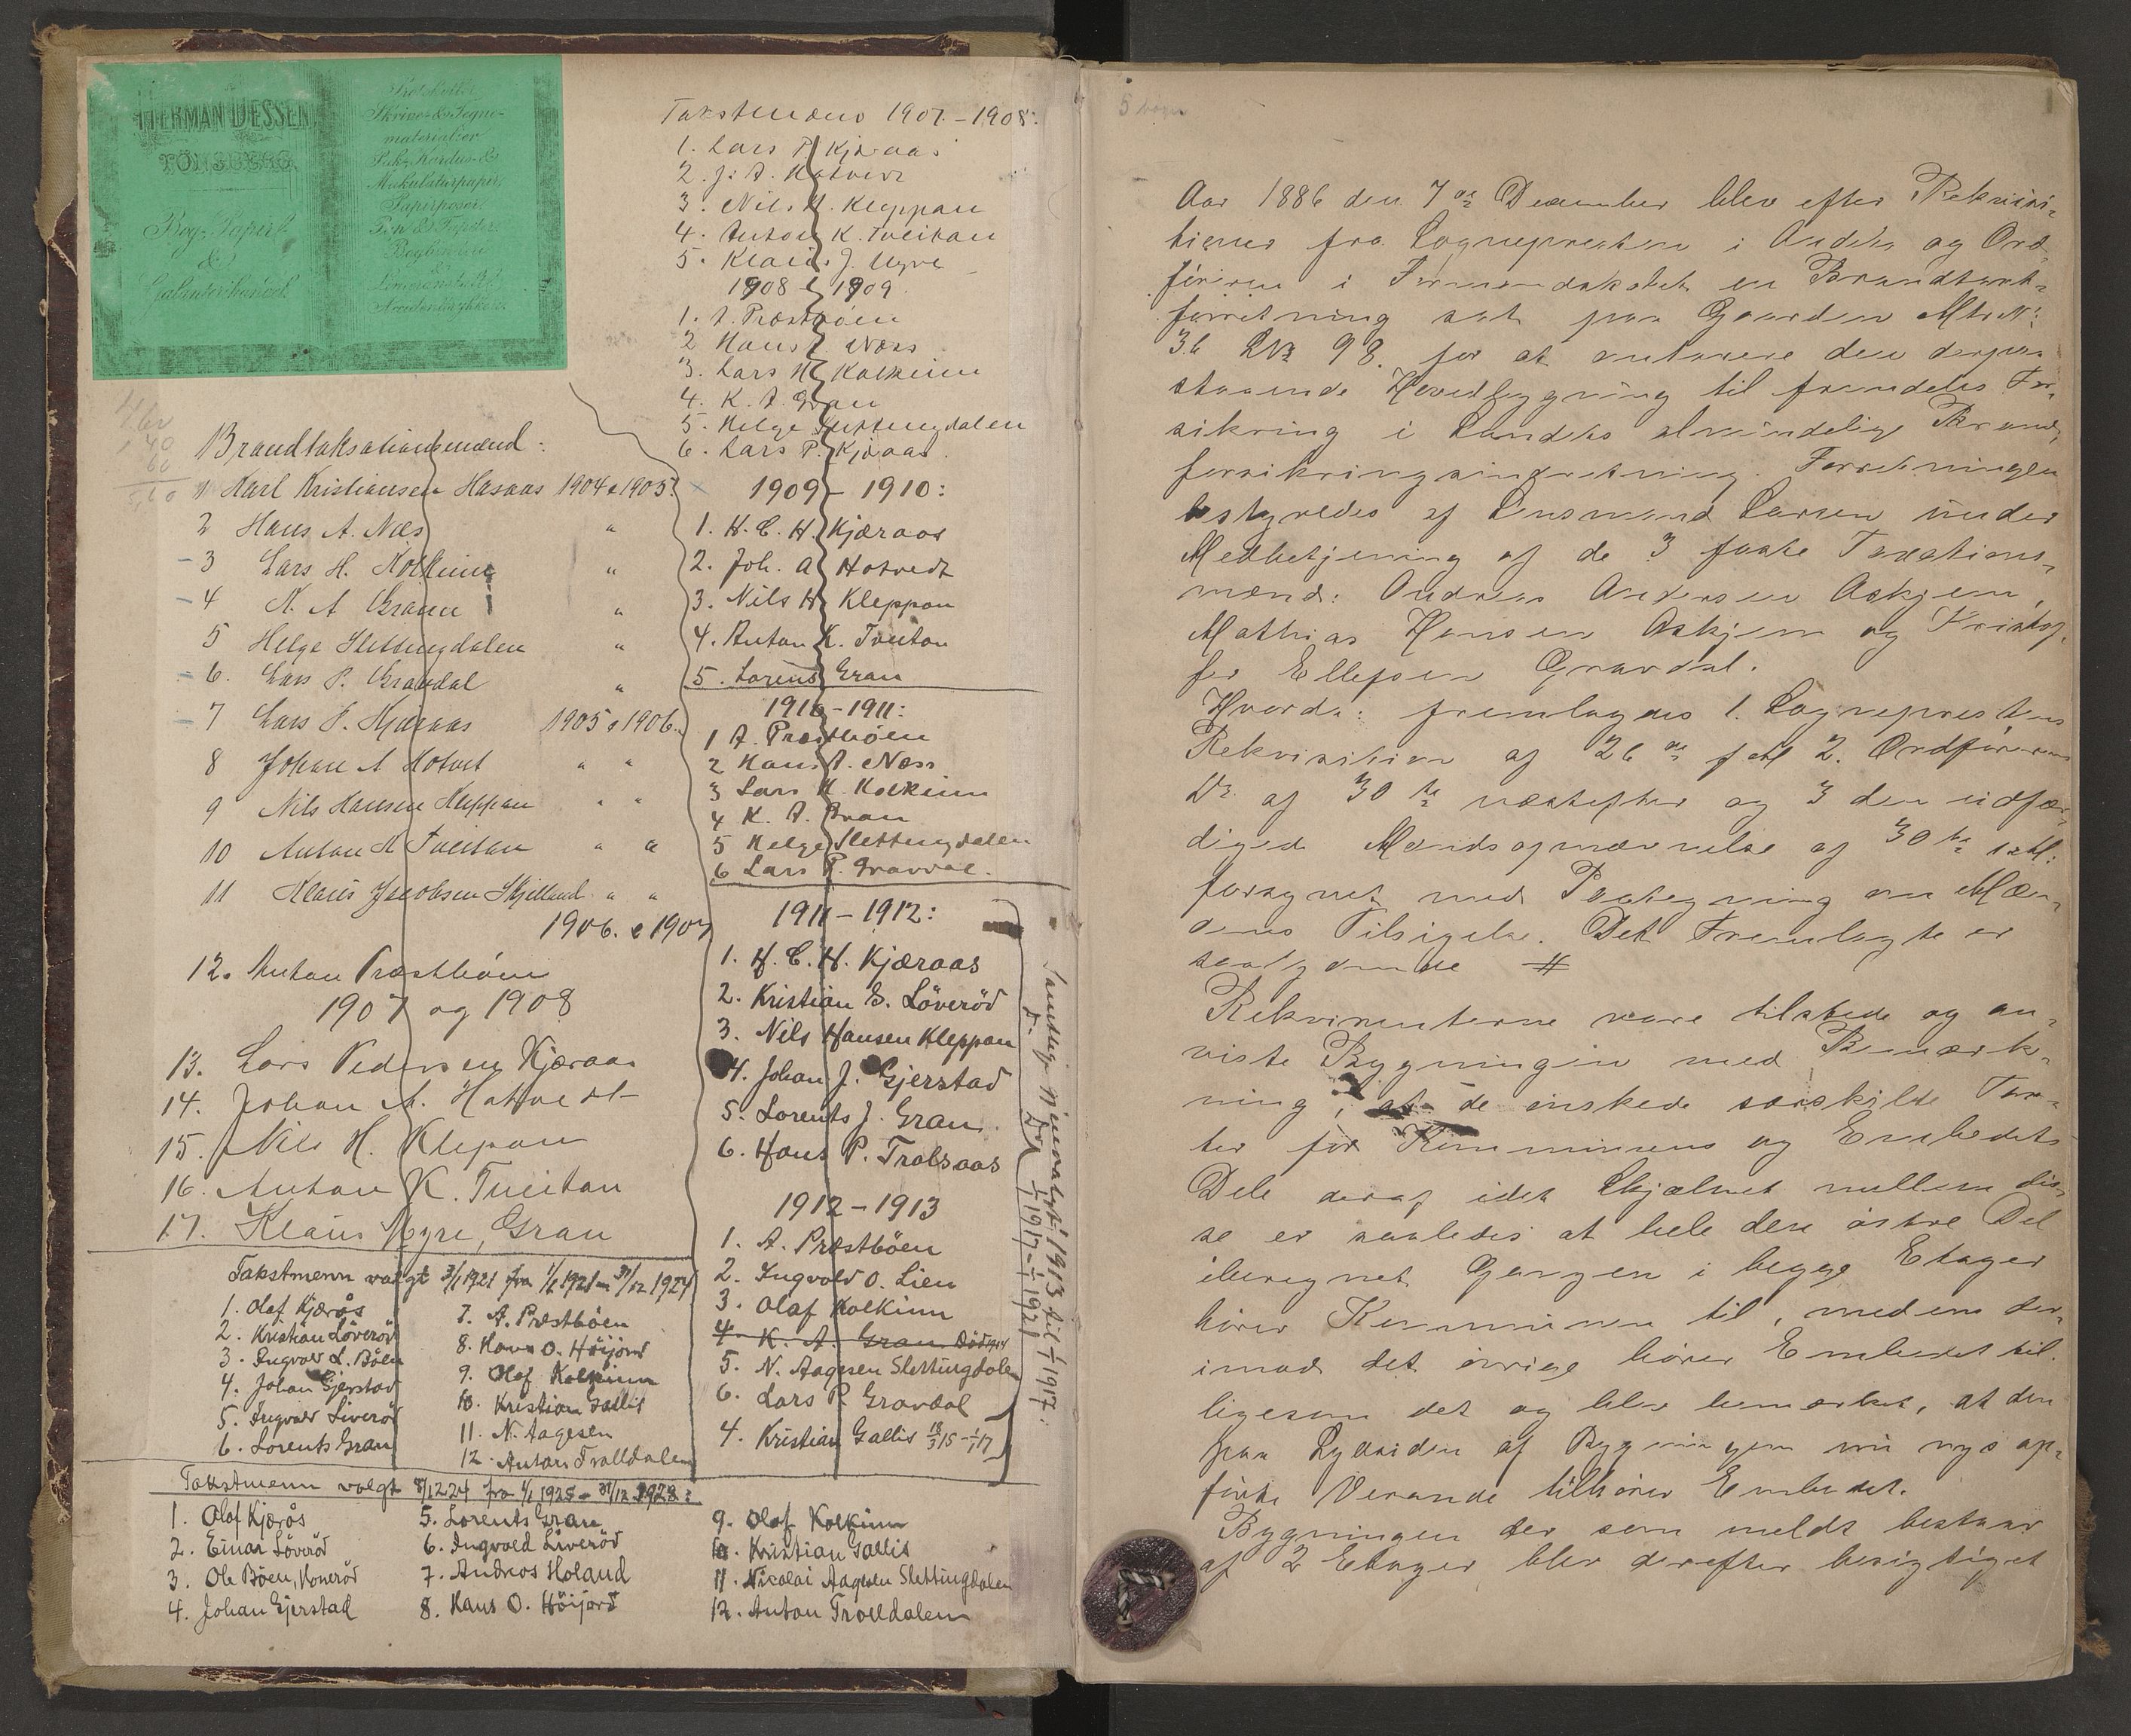 HERMAN DESSEN
TÖNSBERG
Bog-, Papir-
&
Galanterihandel
Protokoller
Skrive- & Tegne-
materialier
Pak-, Kardus- &
Makulaturpapir,
Papirposer
Brandtaksationsmænd:
1 Karl Kristiansen Hasaas 1904 & 1905
2 Hans A. Næs "
3 Lars H. Kolkinn "
4 K. A Grann "
5 Helge Slettingdalen "
6. Lars P. Gravdal "
7 Lars P. Kjæraas 1905 & 1906.
8 Johan A Hotvet " "
9 Nils Hansen Kleppan " "
10 Anton K Tveitan " "
11 Klaus Jacobsen Skjelland " "
1906. & 1907
12. Anton Præstbøen
1907 og 1908
13. Lars Pedersen Kjæraas
14. Johan A. Hotvedt
15. Nils H. Klepan
16. Anton K. Tveitan
17. Klaus Myre, Gran
Takstmenn valgt 3/1 1921 fra 1/1 1921 - 31/12 1924
1. Olaf Kjærås
2. Kristian Löveröd
3. Ingvald L. Böen
4. Johan Gjerstad
5. Ingvald Liveröd
6. Lorents Gran
7. A. Præstböen
8. Hans O. Höijord
9. Olaf Kolkinn
10. Kristian Gallis
11. N. Aagesen
12. Anton Trolldalen
Takstmenn valgt 8/12 24 fra 1/1 1925 - 31/12 1928:
1. Olaf Kjærås
2. Einar Löveröd
3. Ole Böen, Koneröd
4. Johan Gjerstad
5. Lorents Gran
6. Ingvald Liveröd
7. Andreas Holand
8. Hans O. Höijord
9. Olaf Kolkinn
10. Kristian Gallis
11. Nicolai Aagesen Slettingdalen
12. Anton Trolldalen
Takstmænd 1907 - 1908:
1. Lars P Kjæraas
2. J. A. Hotvedt
3. Nils H. Kleppan
4. Anton K. Tveitan
5. Klaus J. Myre
1908 & 1909
1. A. Præstböen
2 Hans A. Næss
3. Lars H. Kolkinn
4. K. A. Gran
5. Helge Slettingdalen
6. Lars P. Kjæraas.
1909 - 1910:
1. H. C. H. Kjæraas
2. Joh. A Hotvedt
3. Nils H. Kleppan
4. Anton K. Tveitan
5. Lorents Gran
1910 - 1911:
1 A. Præstböen
2 Hans A. Næss
3 Lars H. Kolkinn
4 K. A. Gran
5 Helge Slettingdalen
6 Lars P. Gravdal.
1911 - 1912:
1. H. C. H. Kjæraas
2. Kristian G. Löveröd
3. Nils Hansen Kleppan
4. Johan J. Gjerstad
5. Lorents J. Gran
6. Hans P. Tralsaas
1912 - 1913
1. A. Præstböen
2. Ingvald O. Lien
3. Olaf Kolkinn
4. K. A. Gran Död
5. N. Aagesen Slettingdalen
6. Lars P. Gravdal
4. Kristian Gallis 18/3 15 - 1/1 17
Samtlige gjenvalgt 1913 til 1/1 1917.
Do Do 1/1 1917 - 1/1 1921
Aar 1886 den 7de December blev efter Rekvisi-
tioner fra Sognepresten i Andebu og Ord-
föreren i Formandskabet en Brandtaxt-
forretning sat paa Gaarden Mtr. N:
36 LN 98. for at omtaxere den derpaa
staaende Hovedbygning til fremdeles For-
sikring i Landets almindelige Brand-
forsikringsindretning. Forretningen
bestyredes af Lensmand Larsen under
Medbetjening af de 3 faste Taxations-
mænd: Andreas Andersen Askjem,
Mathias Hansen Askjem og Kristof-
fer Ellefsen Gravdal.
Hvorda: fremlagdes 1. Sogneprestens
Rekvisition af 26de f. M 2. Ordförerens
Do af 30te næstefter og 3 den udfær-
digede Mandsopnævnelse af 30te s. M:
forsynet med Paategning om Mæn-
denes Tilsigelse. Det Fremlagte er
saalydende #
Rekvirenterne vare tilstede og an-
viste Bygningen med Bemærk-
ning, at de önskede særskilte Tax-
ter for Kommunens og Embedets
Dele deraf idet Skjælnet mellem dis-
se er saaledes at hele den östre Del
iberegnet Gangen i begge Etager
hörer Kommunen til, medens der-
imod det övrige hörer Embedet til.
ligesom det og blev bemærket, at den
paa Sydsiden af Bygningen nu nys op-
förte Verande tilhörer Embedet.
Bygningen der som meldt bestaar
af 2 Etager blev derefter besigtiget